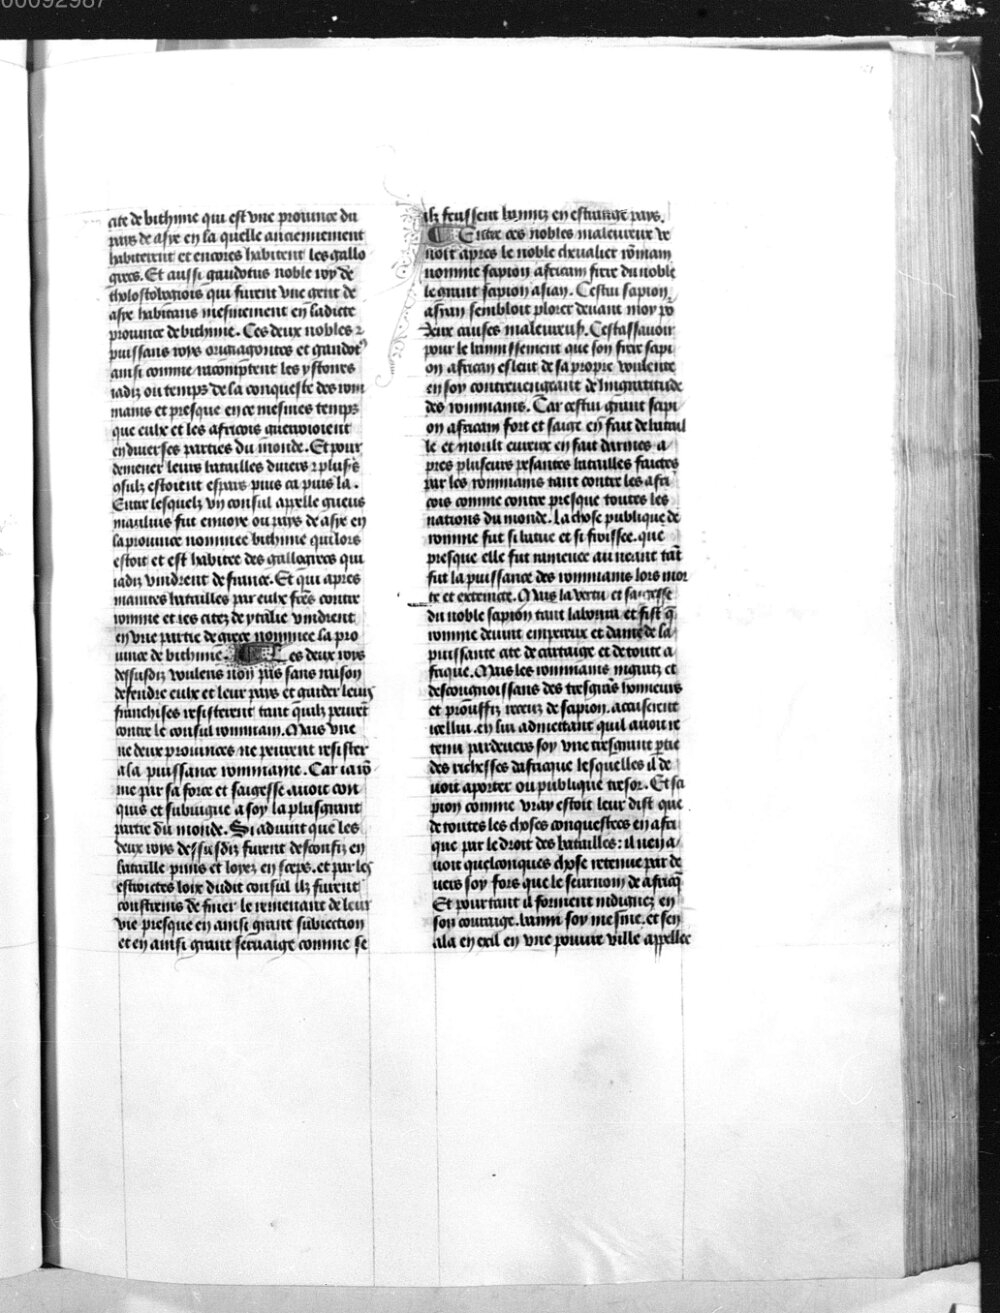 00092987
cite de bithinie qui est vne prouince du
pays de asye en la quelle anciennement
habiterent et encores habitent les gallo
grecs. Et aussi gaudotus noble roy de
tholostobogiois qui furent vne gent de
asye habitans mesmement en ladicte
prouince de bithinie. Ces deux nobles ⁊
puissans roys oriagontes et gaudot9
ainsi comme racomptent les ystoires
iadiz ou temps de la conqueste des rom
mains et presque en ce mesmes temps
que eulx et les affricois guerroioient
en diuerses parties du monde. Et pour
demener leurs batailles diuers ⁊ plus͛s
ꝯsulz estoient espars puis ca puis la.
Entre lesquelz vn consul appelle gneus
manluis fut enuoye ou pays de asye en
la prouince nommee bithinie qui lors
estoit et est habitee des gallogrecs qui
iadiz vindrent de france. Et qui apres
maintes batailles par eulx fc̃es contre
romme et les citez de ytalie vindrent
en vne partie de grece nommee la pro
uince de bithinie. Ces deux roys
dessusdiz voulens non pas sans raison
defendre eulx et leur pays et garder leurs
franchises resisterent tant quilz peurẽt
contre le consul rommain. Mais vne
ne deux prouinces ne peurent resister
a la puissance rommaine. Car ia rõ
me par sa force et saigesse auoit con
quis et subiugue a soy la plusgrant
partie du monde. Si aduint que les
deux roys dessusdiz furent desconfiz en
bataille prins et loyez en sceps. et par les
estroictes loix dudit consul ilz furent
constrains de finer le remenant de leur
vie presque en ainsi grant subiection
et en ainsi grant seruaige comme se
ilz feussent banniz en estrange pays.
Entre ces nobles maleureux ve
noit apres le noble cheualier rõmain
nomme scipion affricam frere du noble
le grant scipion asian. Cestui scipion
asyan sembloit plorer deuant moy po
deux causes maleureus. Cestassauoir
pour le bannissement que son frere scipi
on affrican esleut de sa propre voulente
en soy contreuengeant de lingratitude
des rommains. Car cestui grant scipi
on affricam fort et saige en fait de batail
le et moult eureux en fait darmes a
pres plusieurs pesantes batailles faictes
par les rommains tant contre les affri
cois comme contre presque toutes les
nations du monde. La chose publique de
romme fut si batue et si froissee. que
presque elle fut ramenee au neant tãt
fut la puissance des rommains lors mor
te et exteincte. Mais la vertu et saigesse
du noble scipion tant laboura et fist q̃
romme deuint emperix et dame de la
puissante cite de cartaige et de toute a
frique. Mais les rommains ingratz et
descongnoissans des tresgrãs honneurs
et prouffiz receuz de scipion. accuserent
icellui. en lui admettant quil auoit re
tenu pardeuers soy vne tresgrant ꝑtie
des richesses dafrique lesquelles il de
uoit aporter ou publique tresor. Et sci
pion comme vray estoit leur dist que
de toutes les choses conquestees en affri
que par le droit des batailles: il nen a
uoit quelconques chose retenue par de
uers soy fors que le seurnom de affricq̃
Et pourtant il forment indignez en
son couraige. banni soy mesme. et sen
ala en exil en vne poure ville appellee